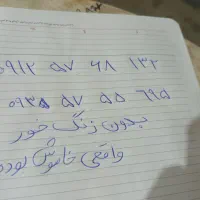 ۰۹۱۲ ۵۷ ۶۸ ۱۳۲
۰۹۳۵ ۵۷ ۵۵ ۶۹۵
بدون زنگ خور
واقعی خاموش بوده